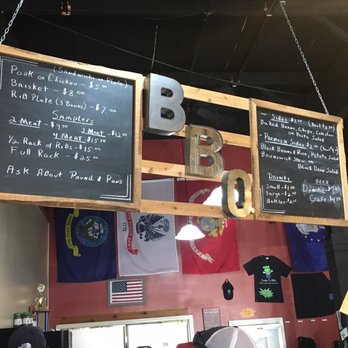 (Sandwiches or Plates)
Pork or Chicken - $5.00
Brisket - $8.00
Rib Plate (3 Bones) - $7.00
Samplers
2 Meat - $9.00
3 Meat - $12.00
4 Meat - $15.00
1/2 Rack of Ribs - $15.00
Full Rack - $25.00
Ask About Pound & Pans
BBQ
Sides
Baked Beans, Chips, Coleslaw
or Pasta Salad
Premium Sides
Black Beans & Rice, Potato Salad
Brunswick Stew,
Black Bean Salad
Drinks
Small - $1.00
Large - $2.00
Bottles - $2.00
Beer
Domestic
Craft